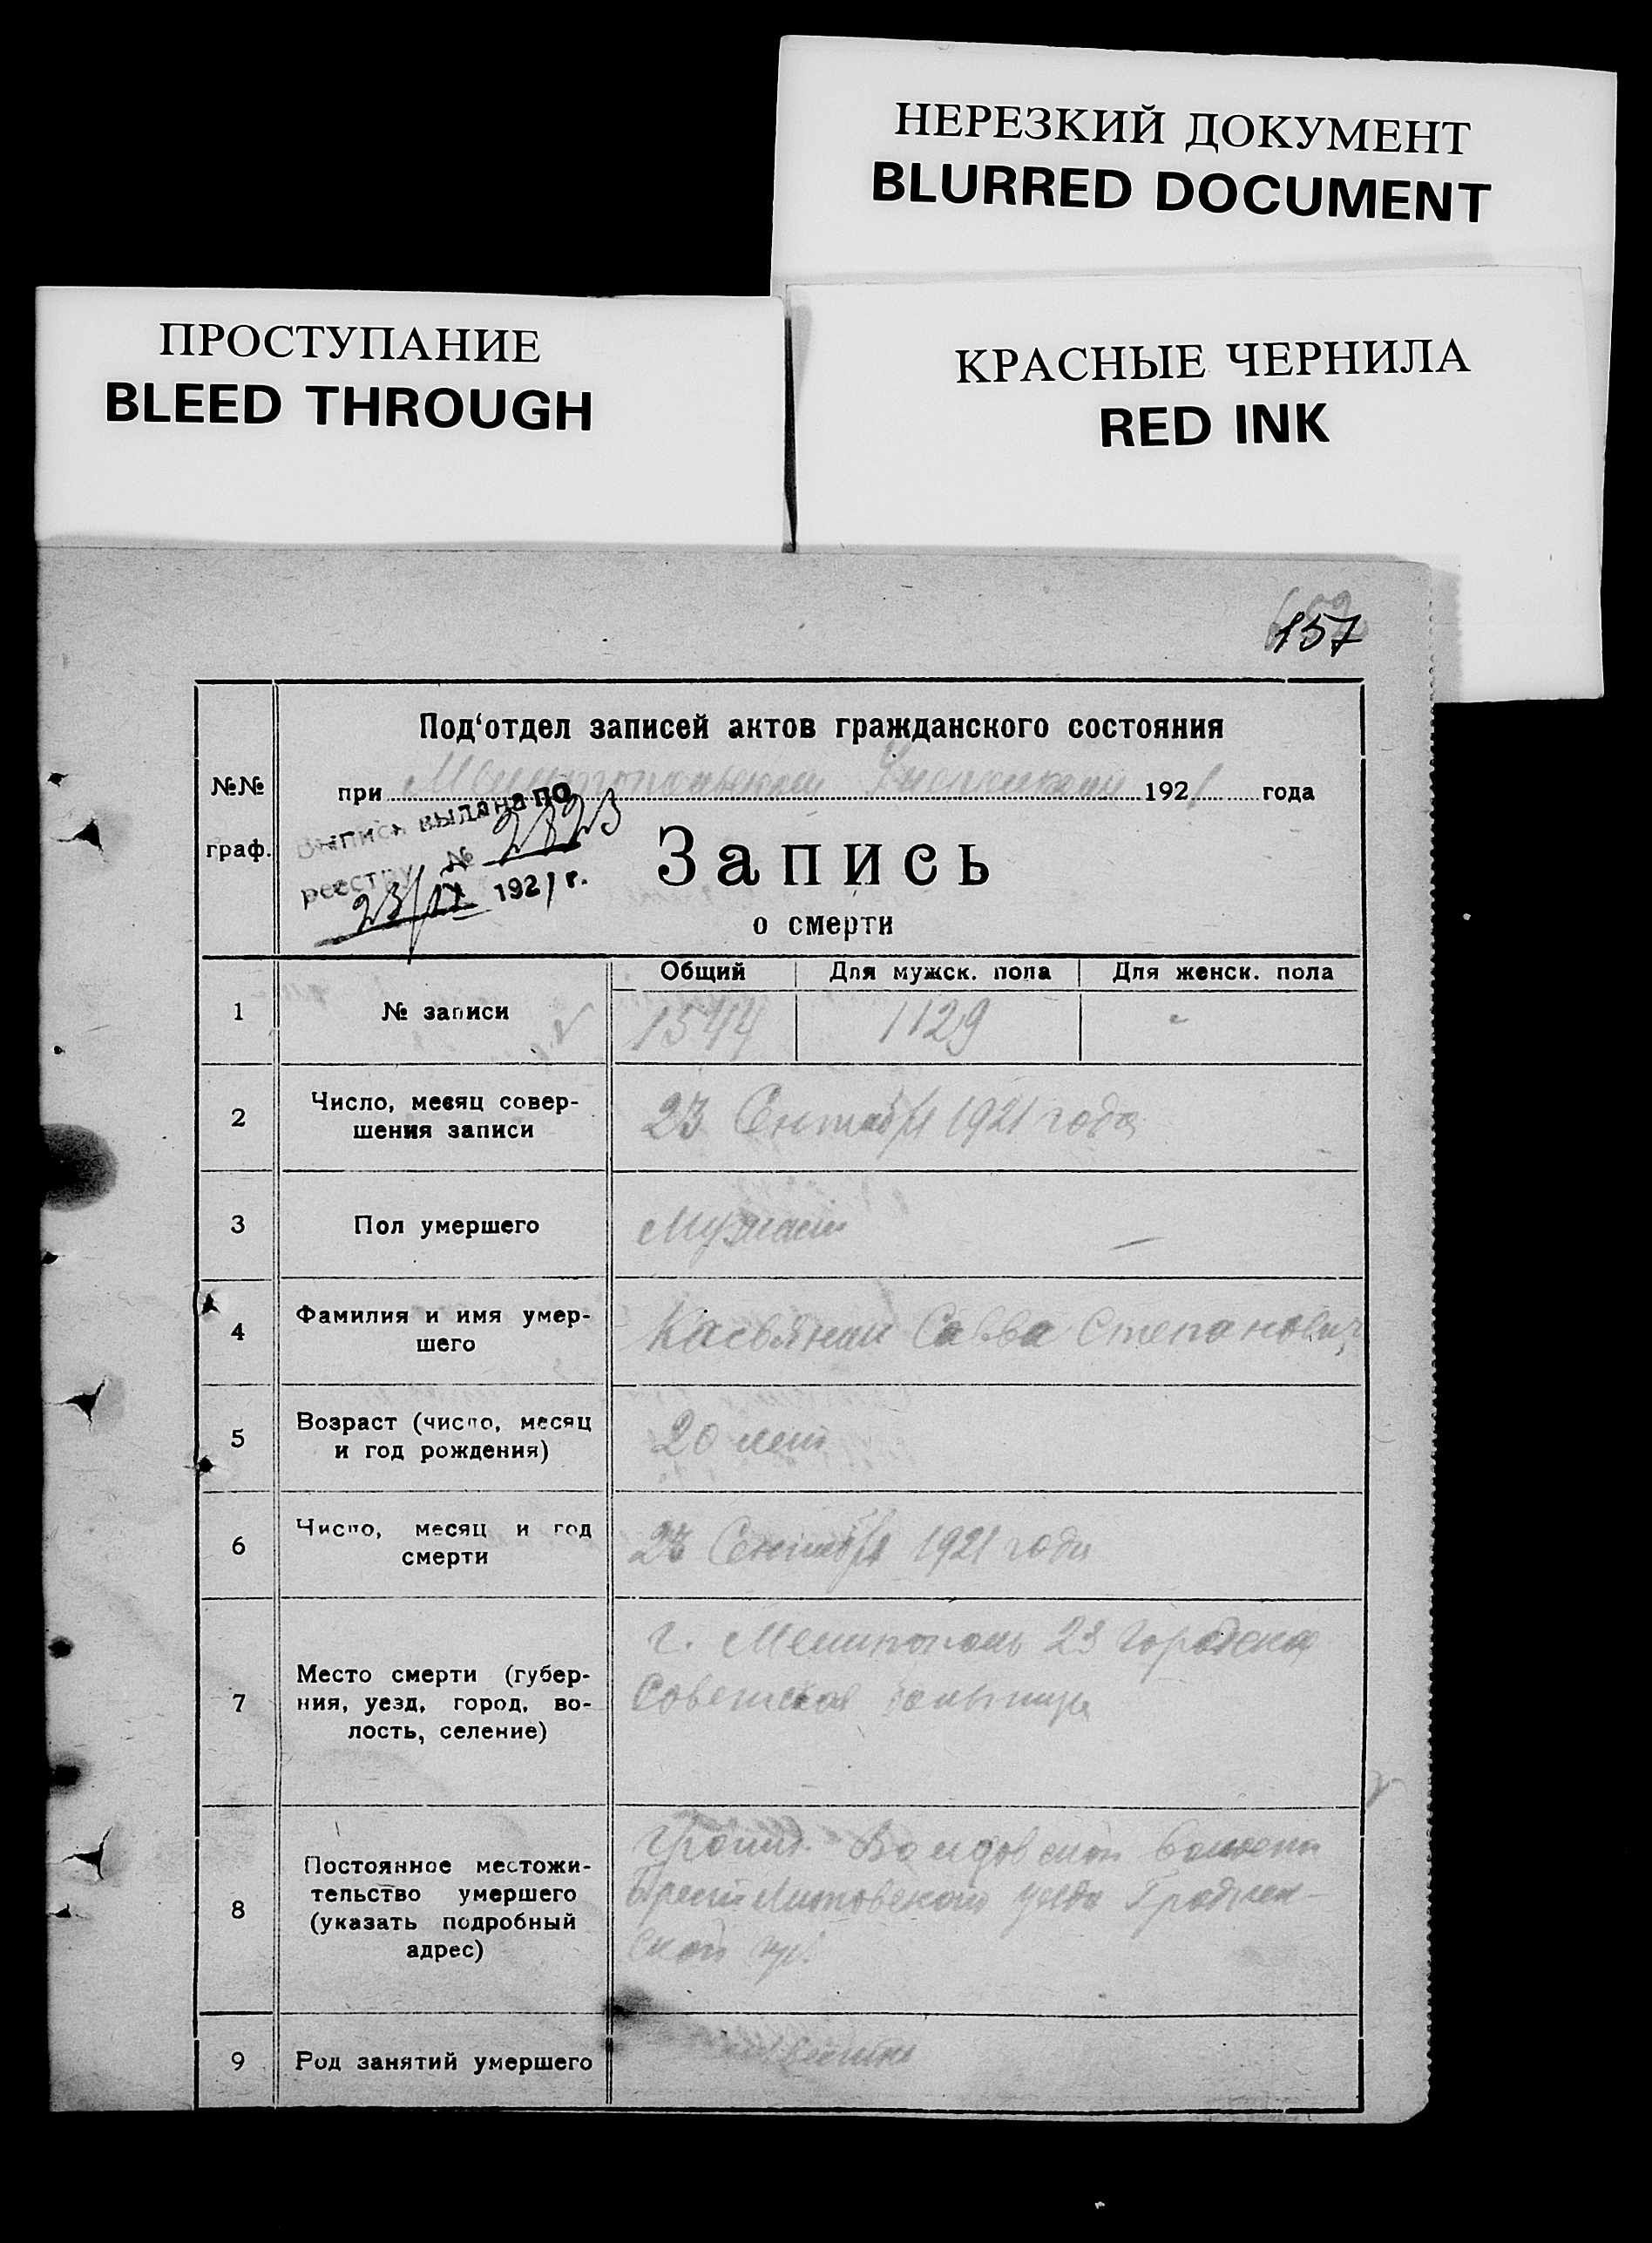 НЕРЕЗКИЙ ДОКУМЕНТ
BLURRED DOCUMENT
ПРОСТУПАНИЕ
BLEED THROUGH
КРАСНЫЕ ЧЕРНИЛА
RED INK
157
№№
граф.
Под‘отдел записей актов гражданского состояния
при 1921 года
Выпись выдана по
реестру № 2823
23/IX 1921 г.
Запись
о смерти
Общий Для мужск. пола Для женск. пола
1 № записи 1544 1129 -
2 Число, месяц совер-
шения записи
23 Сентябр 1921 года
3 Пол умершего Мужской —
4 Фамилия и имя умер-
шего
Касьянин Савва Степанович
5 Возраст (число, месяц
и год рождения)
20 лет
6 Число, месяц и год
смерти
23 Сентябр 1921 года
7 Место смерти (губер-
ния, уезд, город, во-
лость, селение)
г. Мелитополь 23 городская
Советская больница
8 Постоянное местожи-
тельство умершего
(указать подробный
адрес)
волости
Брест Литовского уезда Гроднен-
ской губ.
9 Род занятий умершего